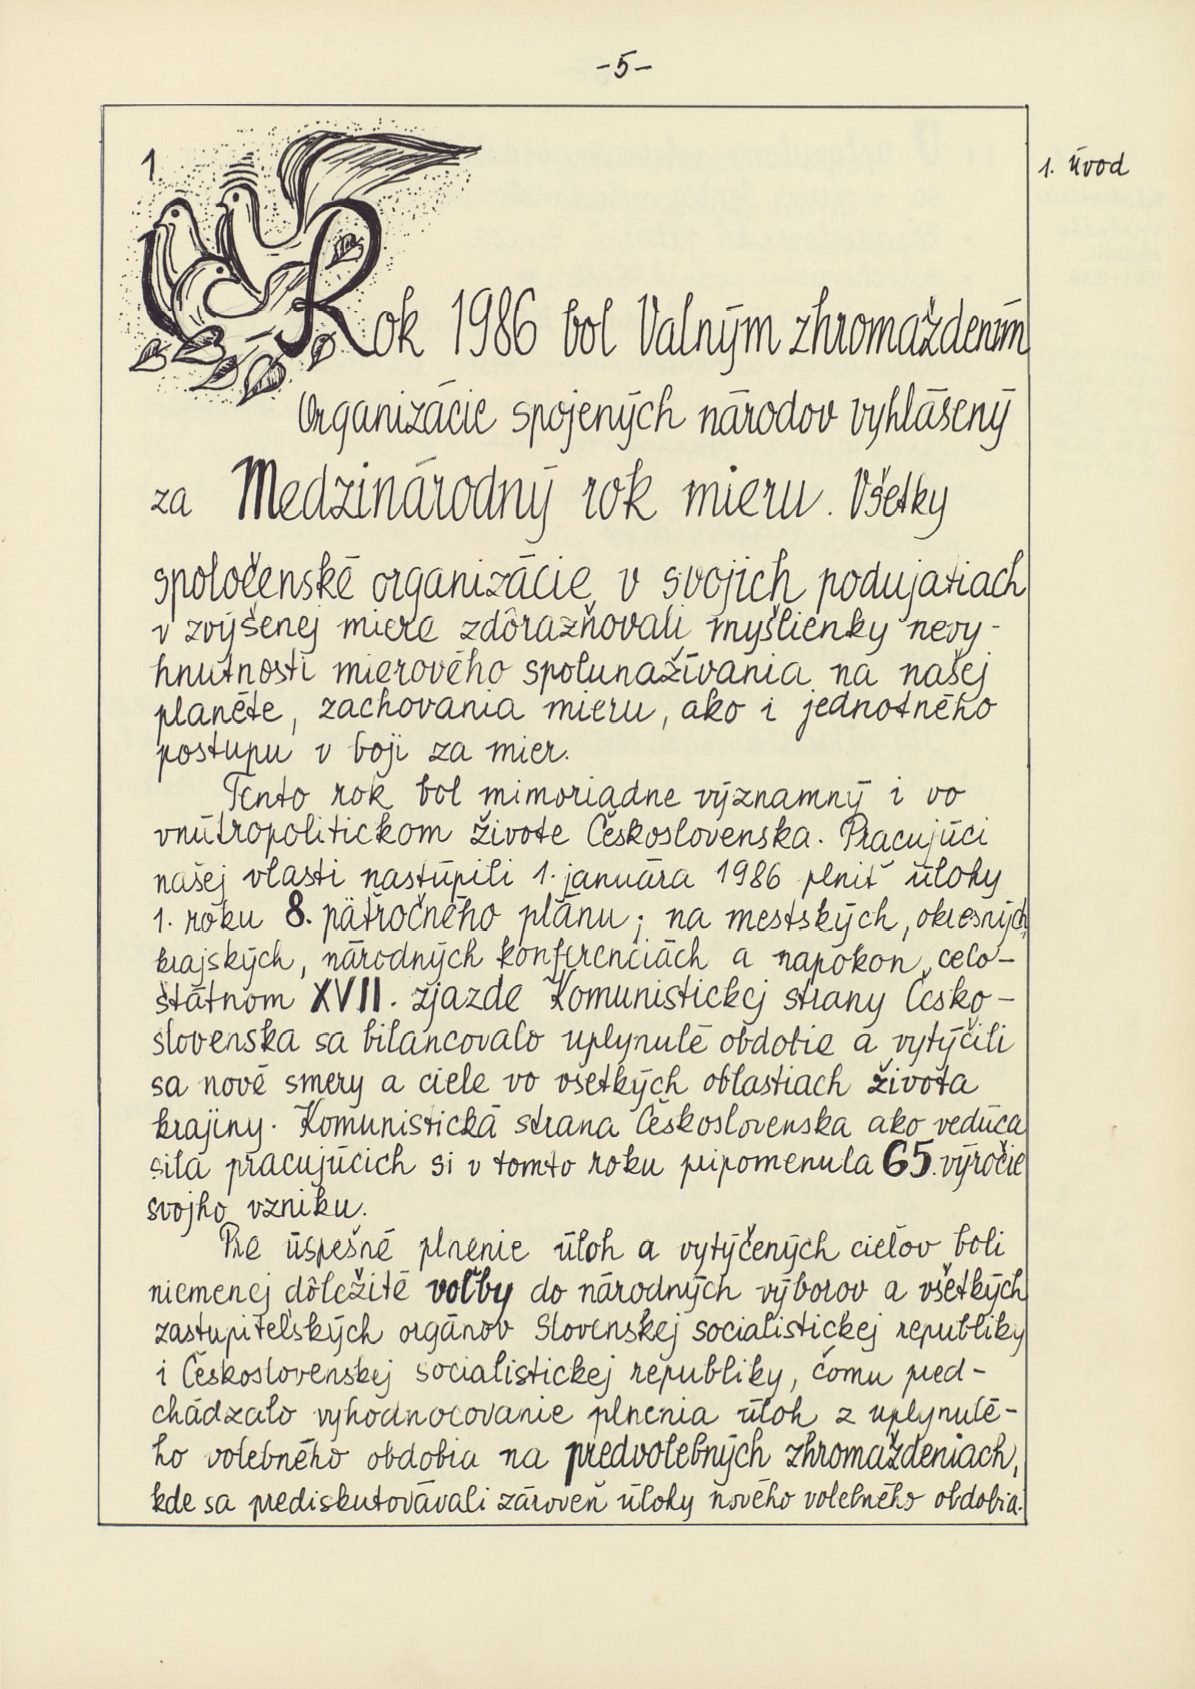 -5-
1
1. Úvod
Rok 1986 bol Valným zhromaždením
Organizácie spojených národov vyhlásený
za Medzinárodný rok mieru. Všetky
spoločenské organizácie v svojich podujatiach
v zvýšenej miere zdôrazňovali myšlienky nevy-
hnutnosti mierového spolunažívania na našej
planéte, zachovania mieru, ako i jednotného
postupu v boji za mier.
Tento rok bol mimoriadne významný i vo
vnútropolitickom živote Československa. Pracujúci
našej vlasti nastúpili 1. januára 1986 plniť úlohy
1. roku 8. päťročného plánu; na mestských, okresných,
krajských, národných konferenciách a napokon celo-
štátnom XVII. zjazde Komunistickej strany Česko-
slovenska sa bilancovalo uplynulé obdobie a vytýčili
sa nové smery a ciele vo všetkých oblastiach života
krajiny. Komunistická strana Československa ako vedúca
sila pracujúcich si v tomto roku pripomenula 65. výročie
svojho vzniku.
Pre úspešné plnenie úloh a vytýčených cieľov boli
niemenej dôležité voľby do národných výborov a všetkých
zastupiteľských orgánov Slovenskej socialistickej republiky
i Československej socialistickej republiky, čomu pred-
chádzalo vyhodnocovanie plnenia úloh z uplynulé-
ho volebného obdobia na predvolebných zhromaždeniach,
kde sa prediskutovávali zároveň úlohy nového volebného obdobia.